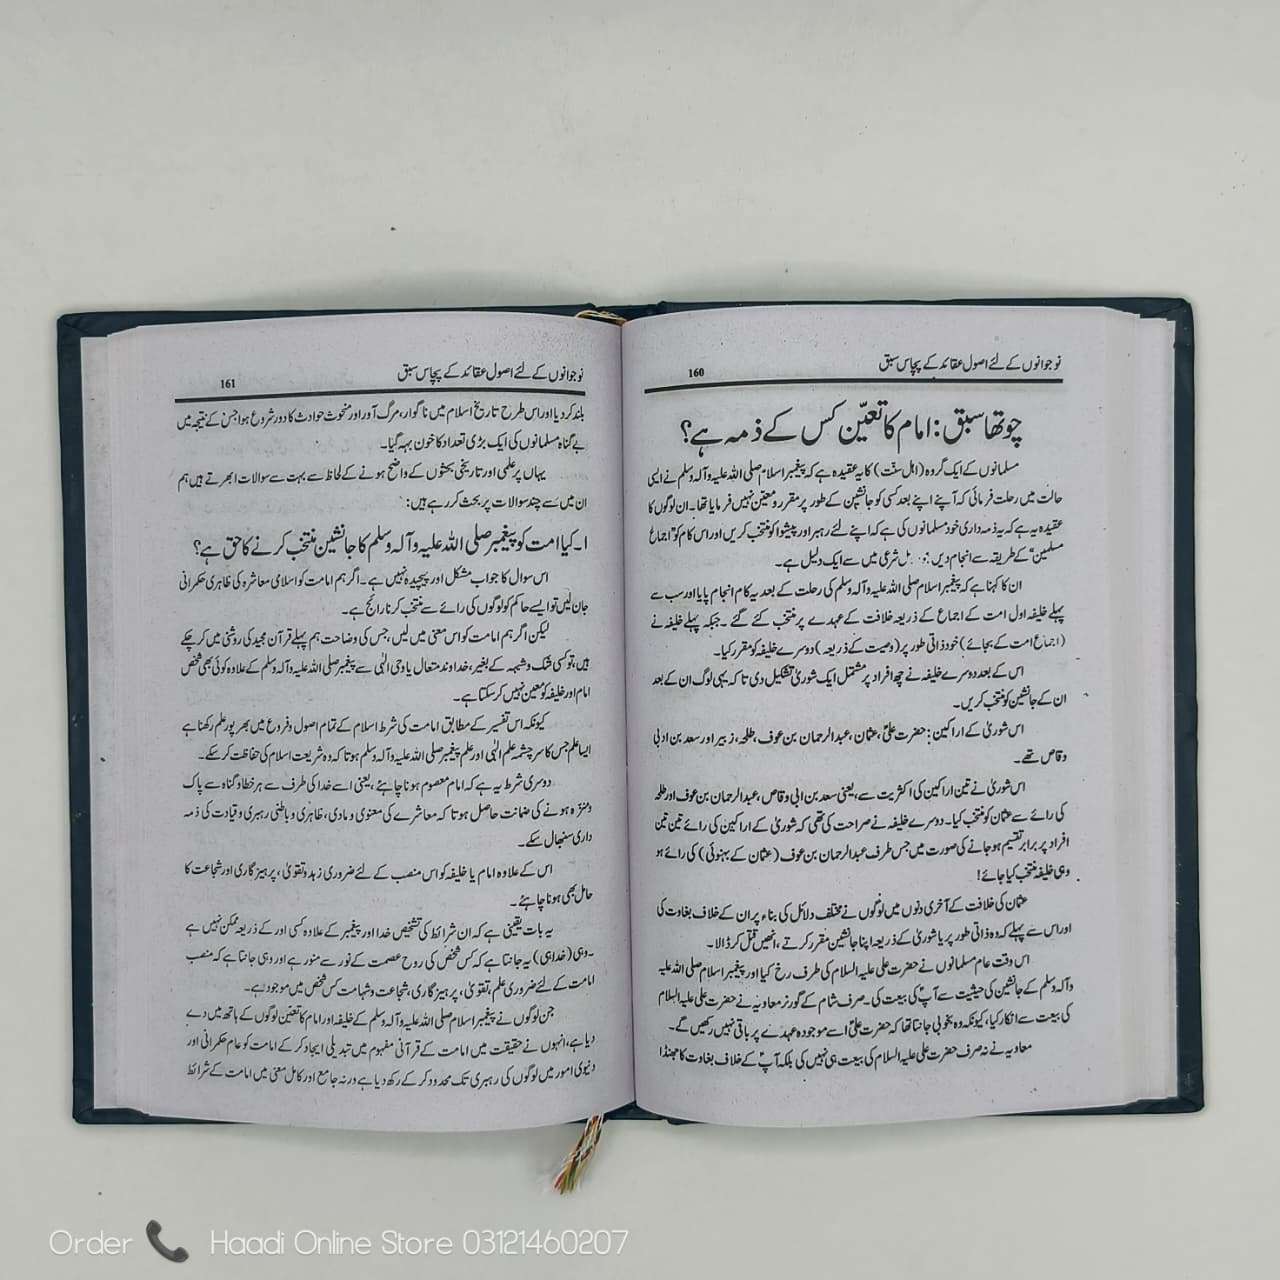 نوجوانوں کے لئے اصول عقائد کے پچاس سبق
160
چوتھا سبق: امام کا تعیّن کس کے ذمہ ہے؟
مسلمانوں کے ایک گروہ (اہل سنّت) کا یہ عقیدہ ہے کہ پیغمبر اسلام صلی اللہ علیہ وآلہ وسلم نے ایسی
حالت میں رحلت فرمائی کہ آپنے اپنے بعد کسی کو جانشین کے طور پر مقرر و معیّن نہیں فرمایا تھا۔ ان لوگوں کا
عقیدہ یہ ہے کہ یہ ذمہ داری خود مسلمانوں کی ہے کہ اپنے لئے رہبر اور پیشوا کو منتخب کریں اور اس کام کو "اجماع
مسلمین" کے طریقہ سے انجام دیں شرعی میں سے ایک دلیل ہے۔
ان کا کہنا ہے کہ پیغمبر اسلام صلی اللہ علیہ وآلہ وسلم کی رحلت کے بعد یہ کام انجام پایا اور سب سے
پہلے خلیفہ اول امت کے اجماع کے ذریعہ خلافت کے عہدے پر منتخب کئے گئے ۔ جبکہ پہلے خلیفہ نے
(اجماع امت کے بجائے) خود ذاتی طور پر (وصیت کے ذریعہ) دوسرے خلیفہ کو مقرر کیا۔
اس کے بعد دوسرے خلیفہ نے چھ افراد پر مشتمل ایک شوریٰ تشکیل دی تا کہ یہی لوگ ان کے بعد
ان کے جانشین کو منتخب کریں۔
اس شوریٰ کے اراکین: حضرت علیؑ، عثمان، عبدالرحمان بن عوف، طلحہ، زبیر اور سعد بن ابی
وقاص تھے۔
اس شوریٰ نے تین اراکین کی اکثریت سے، یعنی سعد بن ابی وقاص، عبدالرحمان بن عوف اور طلحہ
کی رائے سے عثمان کو منتخب کیا۔ دوسرے خلیفہ نے صراحت کی تھی کہ شوریٰ کے اراکین کی رائے تین تین
افراد پر برابر تقسیم ہو جانے کی صورت میں جس طرف عبدالرحمان بن عوف (عثمان کے بہنوئی) کی رائے ہو
وہی خلیفہ منتخب کیا جائے!
عثمان کی خلافت کے آخری دنوں میں لوگوں نے مختلف دلائل کی بناء پر ان کے خلاف بغاوت کی
اور اس سے پہلے کہ وہ ذاتی طور پر یا شوریٰ کے ذریعہ اپنا جانشین مقرر کرتے، انھیں قتل کر ڈالا۔
اس وقت عام مسلمانوں نے حضرت علی علیہ السلام کی طرف رخ کیا اور پیغمبر اسلام صلی اللہ علیہ
وآلہ وسلم کے جانشین کی حیثیت سے آپؑ کی بیعت کی۔ صرف شام کے گورنر معاویہ نے حضرت علی علیہ السلام
کی بیعت سے انکار کیا، کیونکہ وہ بخوبی جانتا تھا کہ حضرت علیؑ اسے موجودہ عہدے پر باقی نہیں رکھیں گے۔
معاویہ نے نہ صرف حضرت علی علیہ السلام کی بیعت ہی نہیں کی بلکہ آپؑ کے خلاف بغاوت کا جھنڈا
نوجوانوں کے لئے اصول عقائد کے پچاس سبق
161
بلند کر دیا اور اس طرح تاریخ اسلام میں ناگوار، مرگ آور اور منحوث حوادث کا دور شروع ہوا جس کے نتیجہ میں
بے گناہ مسلمانوں کی ایک بڑی تعداد کا خون بہہ گیا۔
یہاں پر علمی اور تاریخی بحثوں کے واضح ہونے کے لحاظ سے بہت سے سوالات ابھرتے ہیں ہم
ان میں سے چند سوالات پر بحث کر رہے ہیں:
۱۔ کیا امت کو پیغمبر صلی اللہ علیہ وآلہ وسلم کا جانشین منتخب کرنے کا حق ہے؟
اس سوال کا جواب مشکل اور پیچیدہ نہیں ہے۔ اگر ہم امامت کو اسلامی معاشرہ کی ظاہری حکمرانی
جان لیں تو ایسے حاکم کو لوگوں کی رائے سے منتخب کرنا رائج ہے۔
لیکن اگر ہم امامت کو اس معنی میں لیں، جس کی وضاحت ہم پہلے قرآن مجید کی روشنی میں کر چکے
ہیں، تو کسی شک و شبہہ کے بغیر، خداوند متعال یا وحی الٰہی سے پیغمبر صلی اللہ علیہ وآلہ وسلم کے علاوہ کوئی بھی شخص
امام اور خلیفہ کو معین نہیں کر سکتا ہے۔
کیونکہ اس تفسیر کے مطابق امامت کی شرط اسلام کے تمام اصول و فروع میں بھر پور علم رکھنا ہے
ایسا علم جس کا سرچشمہ علم الٰہی اور علم پیغمبر صلی اللہ علیہ وآلہ وسلم ہو تا کہ وہ شریعت اسلام کی حفاظت کر سکے۔
دوسری شرط یہ ہے کہ امام معصوم ہونا چاہئے، یعنی اسے خدا کی طرف سے ہر خطا و گناہ سے پاک
و منزہ ہونے کی ضمانت حاصل ہو تا کہ معاشرے کی معنوی و مادی، ظاہری و باطنی رہبری و قیادت کی ذمہ
داری سنبھال سکے۔
اس کے علاوہ امام یا خلیفہ کو اس منصب کے لئے ضروری زہد و تقویٰ، پرہیز گاری اور شجاعت کا
حامل بھی ہونا چاہئے۔
یہ بات یقینی ہے کہ ان شرائط کی تشخیص خدا اور پیغمبر کے علاوہ کسی اور کے ذریعہ ممکن نہیں ہے
۔ وہی (خدا ہی) یہ جانتا ہے کہ کس شخص کی روح عصمت کے نور سے منور ہے اور وہی جانتا ہے کہ منصب
امامت کے لئے ضروری علم، تقویٰ، پرہیز گاری، شجاعت و شہامت کس شخص میں موجود ہے۔
جن لوگوں نے پیغمبر اسلام صلی اللہ علیہ وآلہ وسلم کے خلیفہ اور امام کا تعیّن لوگوں کے ہاتھ میں دے
دیا ہے، انہوں نے حقیقت میں امامت کے قرآنی مفہوم میں تبدیلی ایجاد کر کے امامت کو عام حکمرانی اور
دنیوی امور میں لوگوں کی رہبری تک محدود کر کے رکھ دیا ہے ورنہ جامع اور کامل معنی میں امامت کے شرائط
Order Haadi Online Store 03121460207